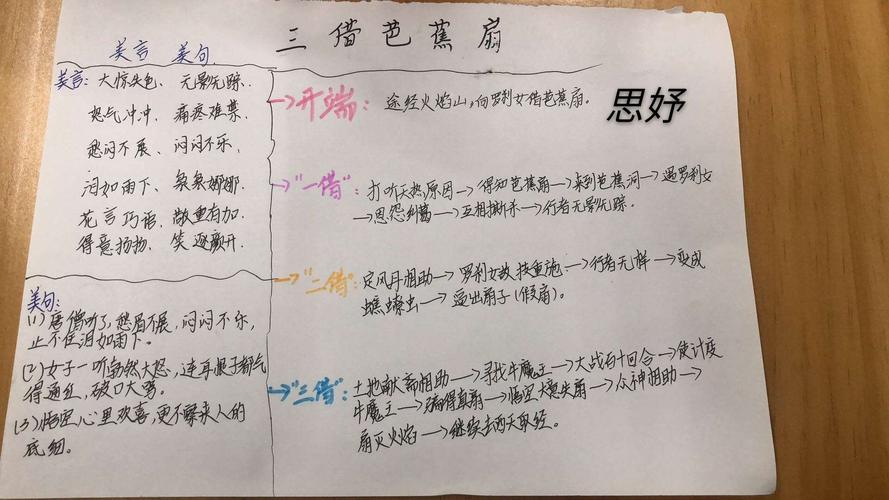 三借芭蕉扇
思妤
美言 美句
美言：大惊失色、无影无踪、
怒气冲冲、痛疼难禁、
愁闷不展、闷闷不乐、
泪如雨下、袅袅娜娜、
花言巧语、敬重有加、
得意扬扬、笑逐颜开、
美句：
(1)唐僧听了，愁眉不展，闷闷不乐，
止不住泪如雨下。
(2)女子一听勃然大怒，连耳根子都气
得通红，破口大骂。
(3)悟空心里欢喜，更不露来人的
底细。
→开端： 途经火焰山，向罗刹女借芭蕉扇。
→"一借"：打听天热原因→得知芭蕉扇→来到芭蕉洞→遇罗刹女
→恩怨纠葛→互相撕杀→行者无影无踪。
→"二借"：定风丹相助→罗刹女故技重施→行者无样→变成
蟭蟟虫→逼出扇子(假扇)。
→"三借"：土地献斋相助→寻找牛魔王→大战百十回合→使计变
牛魔王→骗得真扇→悟空大意失扇→众神相助→
扇灭火焰→继续去西天取经。